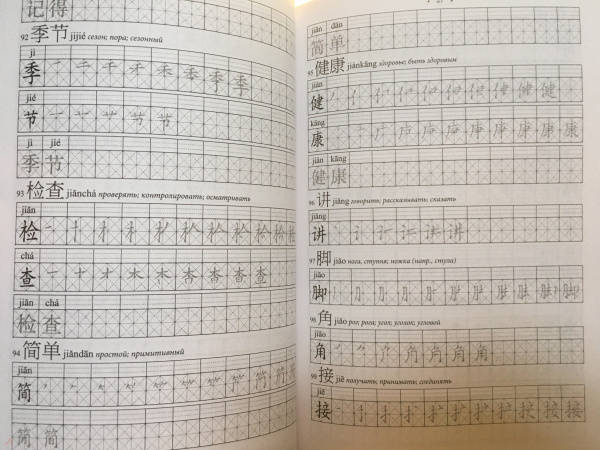 记得
92 季节 jìjié сезон; пора; сезонный
jì
季
jié
节
jì jié
季节
93 检查 jiǎnchá проверять; контролировать; осматривать
jiǎn
检
chá
查
jiǎn chá
检查
94 简单 jiǎndān простой; примитивный
jiǎn
简
简 简
jiǎn dān
简单
95 健康 jiànkāng здоровье; быть здоровым
jiàn
健
kāng
康
jiàn kāng
健康
96 讲 jiǎng говорить; рассказывать; сказать
jiǎng
讲
97 脚 jiǎo нога, ступня; ножка (напр., стула)
jiǎo
脚
98 角 jiǎo рог, рога; угол; уголок; угловой
jiǎo
角
99 接 jiē получать; принимать; соединять
jiē
接